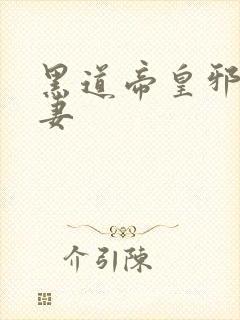 黑道帝皇邪
妻
介引陳